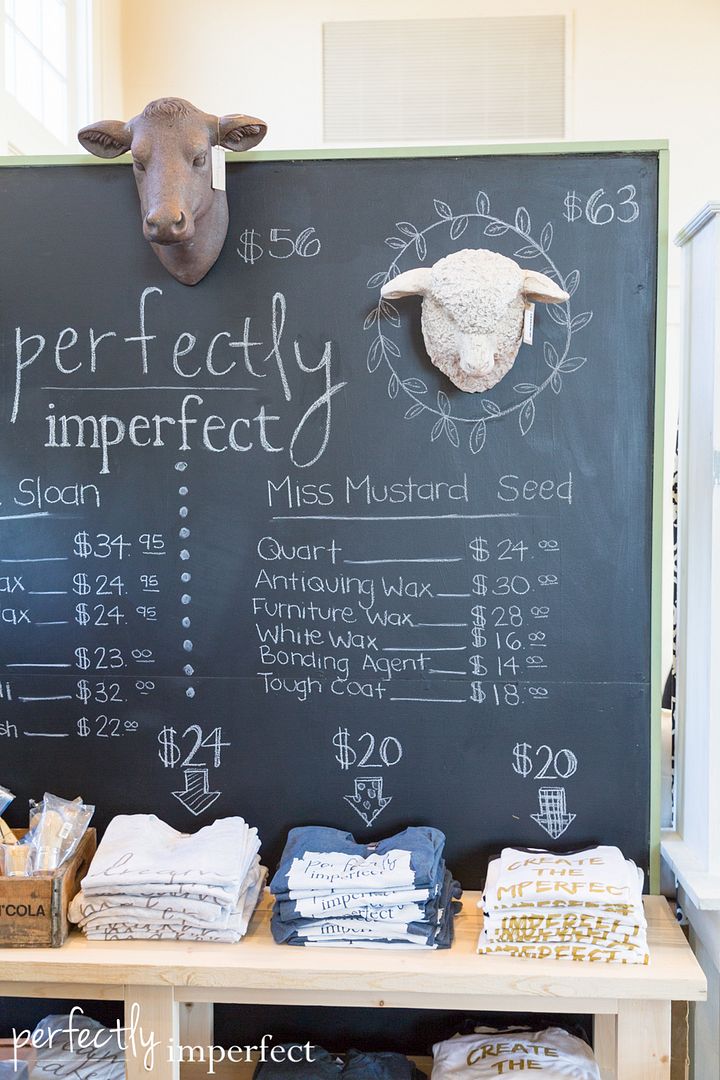 $56
$63
perfectly
imperfect
Sloan
$34.95
ax $24.95
ax $24.95
$23.00
$32.00
sh $22.00
Miss Mustard Seed
Quart $24.00
Antiquing Wax $30.00
Furniture Wax $28.00
White Wax $16.00
Bonding Agent $14.00
Tough Coat $18.00
$24
$20
$20
perfectly
imperfect
imperfect
imperfect
CREATE
THE
MPERFECT
IMPERFECT
IMPERFECT
'COLA
CREATE
THE
perfectly imperfect